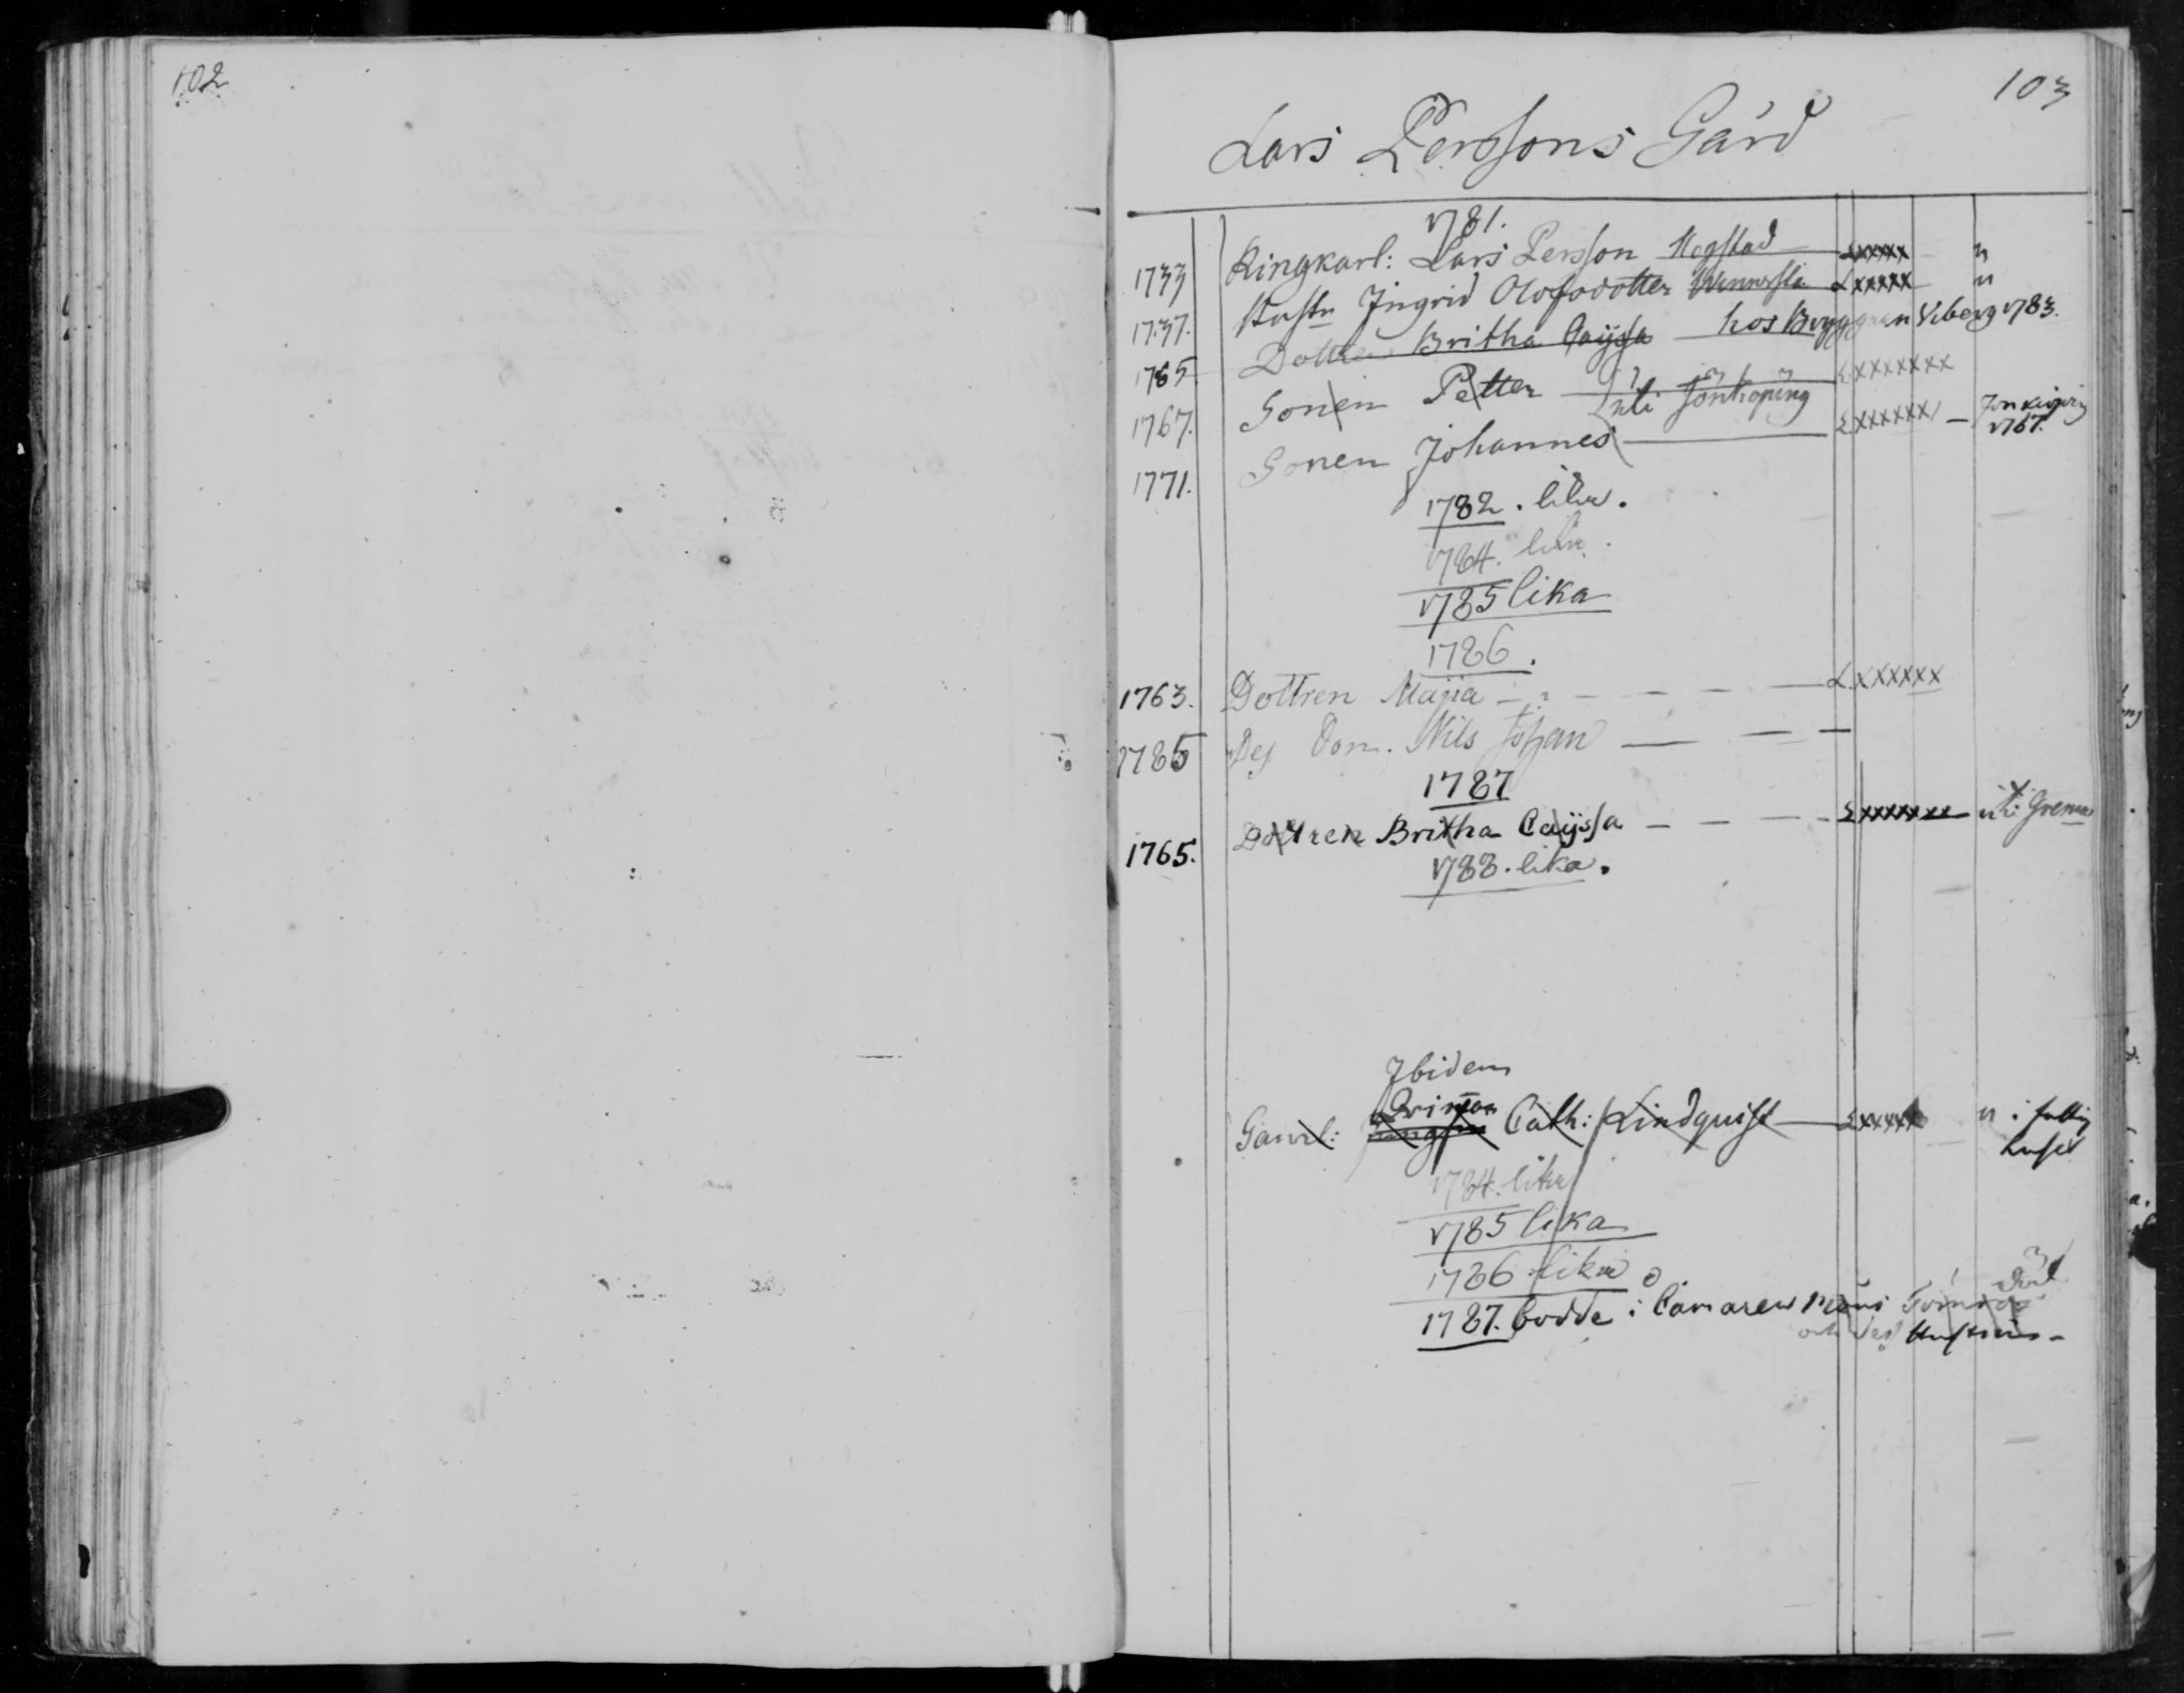 102
103
Lars Perssons Gård
1781.
1733 Ringkarl: Lars Persson Hogstad xxxxx n
1737. Hustr Ingrid Olofsdotter xxxxx n
1765 Dottren Britha Caijsa hos Bryggaren Viberg 1783.
1767. Sonen Petter xxxxxxx
uti Jönköping
1771. Sonen Johannes xxxxxx Jönkiöping
1787.
1782. lika.
1784. lika.
1785 lika
1786.
1763. Dottren Majia xxxxxx
1785 Des Son. Nils Johan
1787
1765. Dottren Britha Caijssa xxxxxxx uti Grenna
1788. lika.
Ibidem
Qvinan
Gaml: Cath: Lindquist xxxxx n i fattig
huset
1784. lika
1785 lika
1786 lika
1787. bodde i Camaren Död
och des Hustru